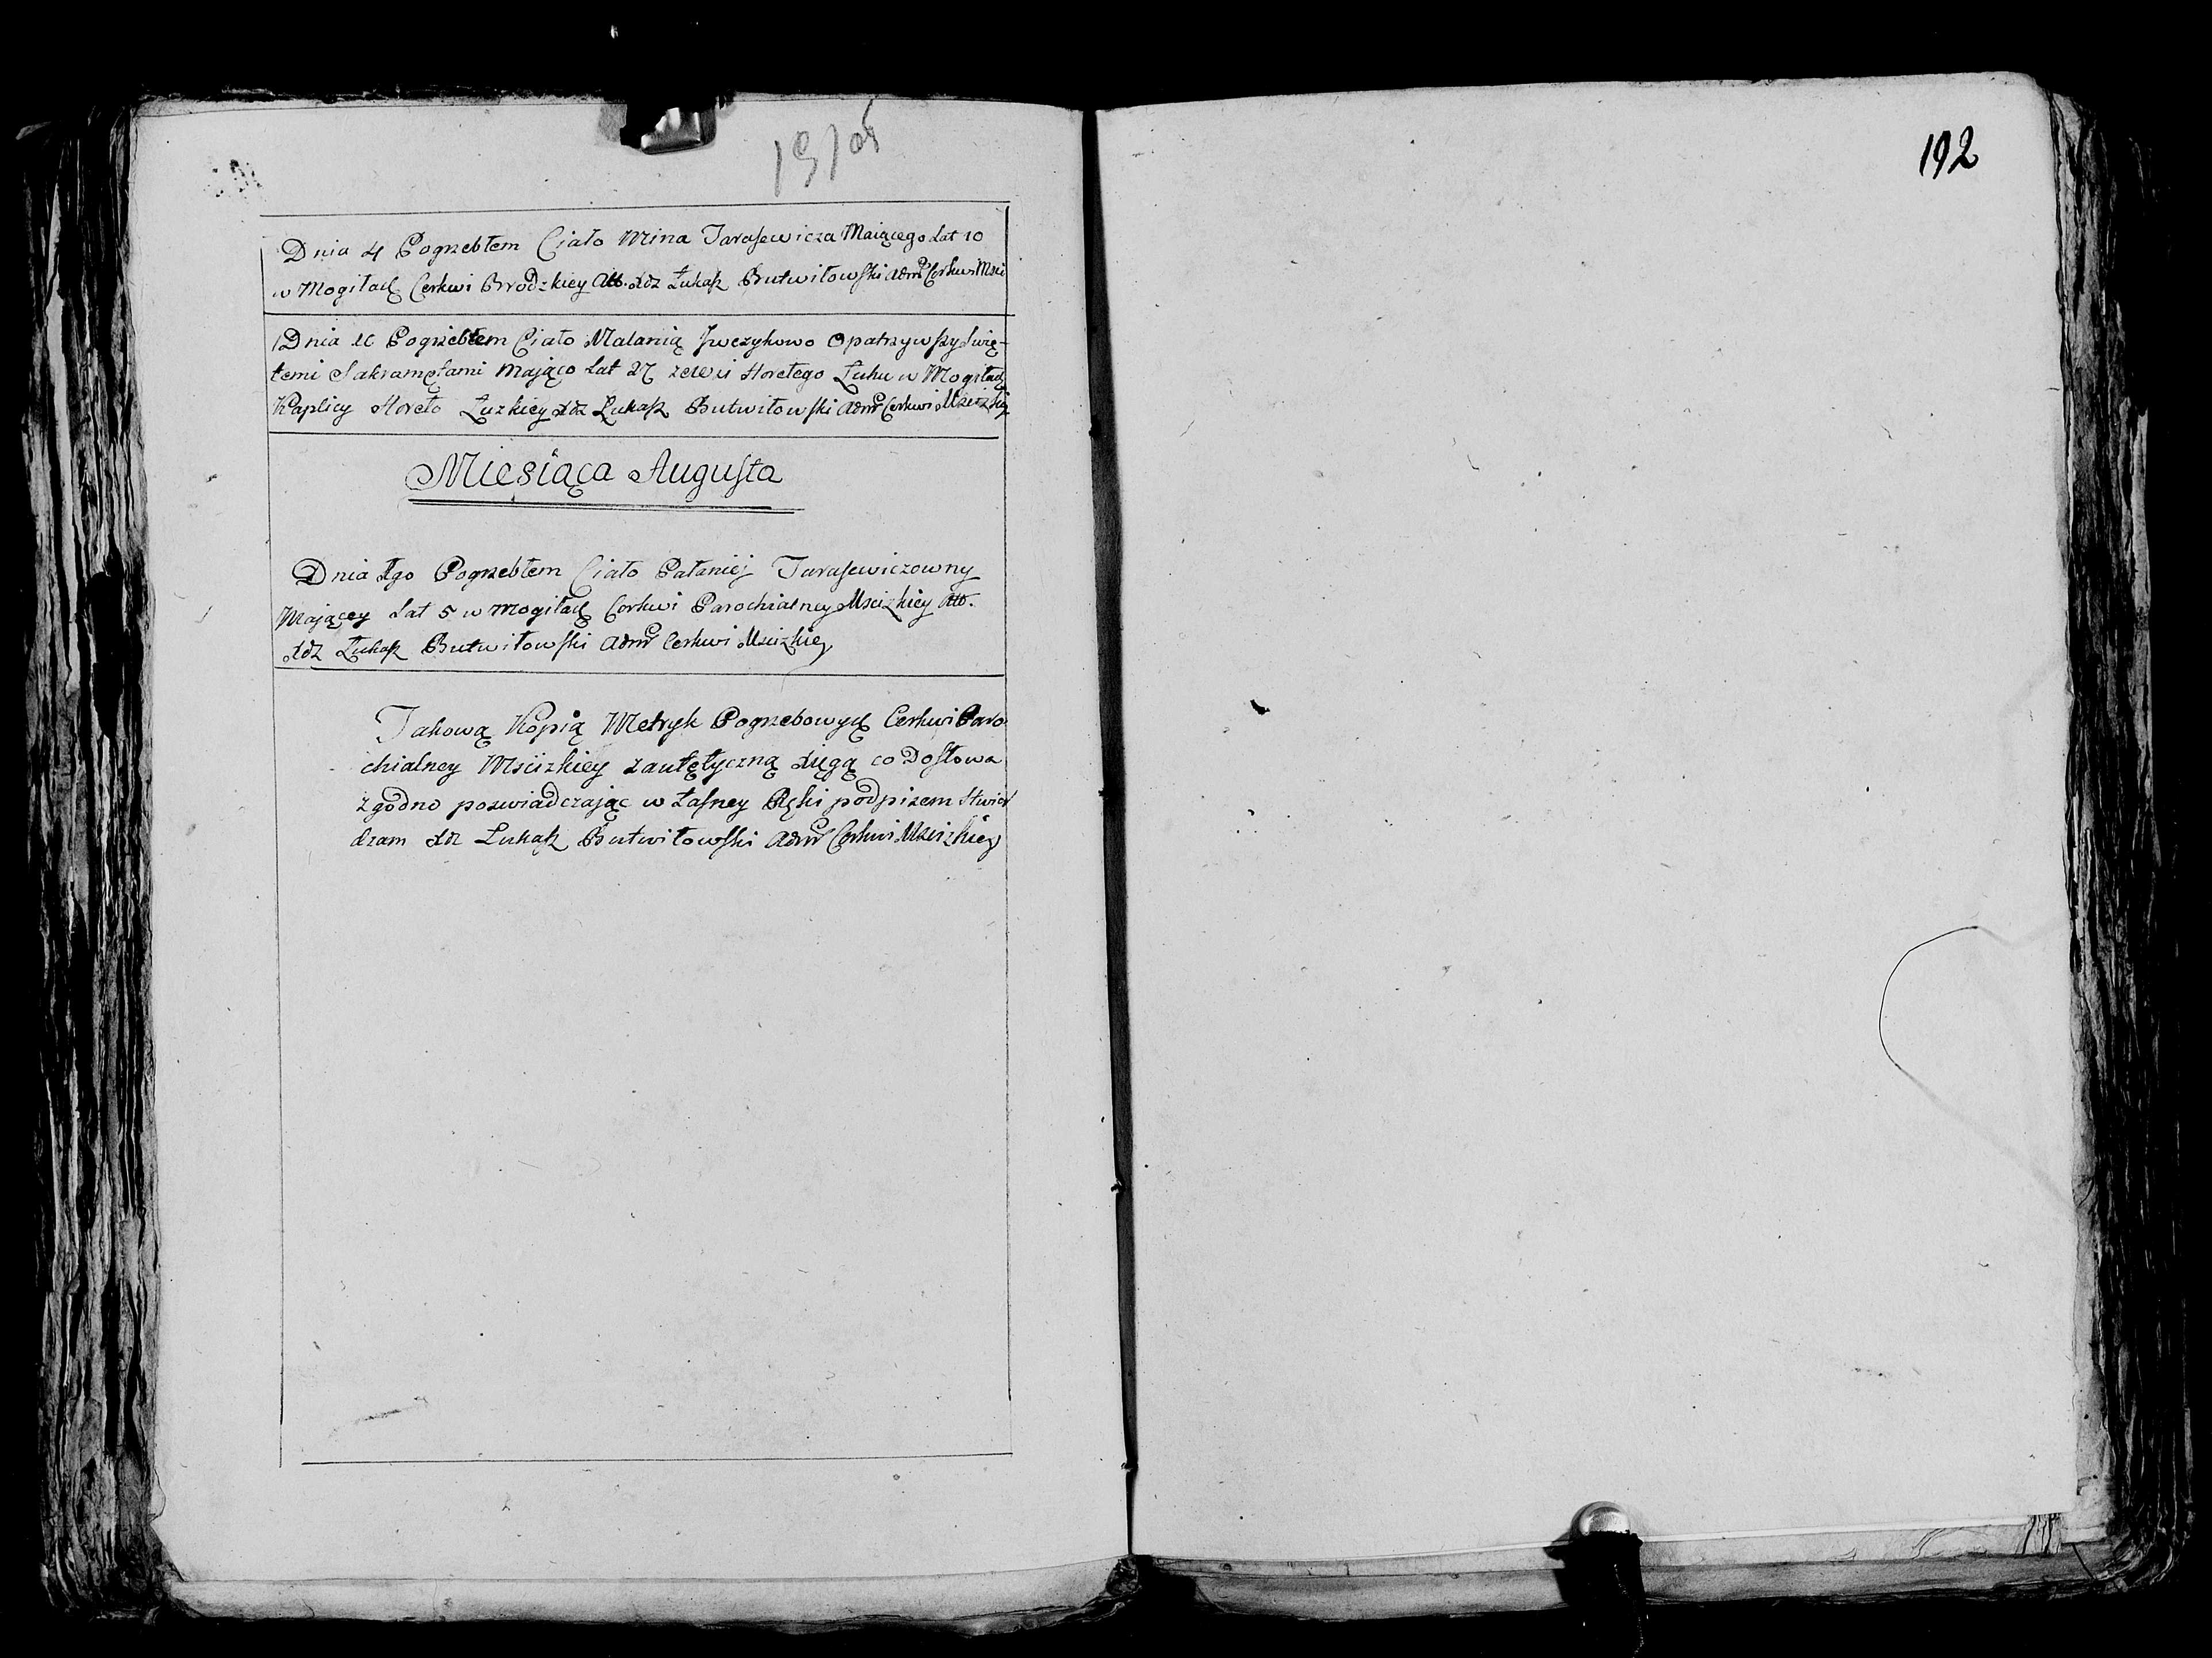 192
Dnia 4 Pogrzebłem Ciało Mina Tarasewicza Maiącego Lat 10
w Mogiłach Cerkwi Brodzkiey Att. Xdz Łukasz Butwiłowski Admr Cerkwi Msci
Dnia Pogrzebłem Ciało Malanią Opatrzywszy Swię-
temi Sakramętami Mająco Lat 27 zewsi Horełego Ługu w Mogiłach
Kaplicy Horeło Łuzkiey Xdz Łukasz Butwiłowski Admr Cerkwi Mscizkiey
Miesiąca Augusta
Dnia 1go Pogrzebłem Ciało Pałaniej Tarasewiczowny
Mającey Lat 5 w Mogiłach Cerkwi Parochialney Mscizkiey Att.
Xdz Łukasz Butwiłowski Admr Cerkwi Mscizkiey
Takową Kopią Metryk Pogrzebowych Cerkwi Paro
chialney Mscizkiey zautętyczną xięgą co Dosłowa
zgodno poswiadczając własney Ręki podpisem stwier
dzam Xdz Łukasz Butwiłowski Admr Cerkwi Mscizkiey